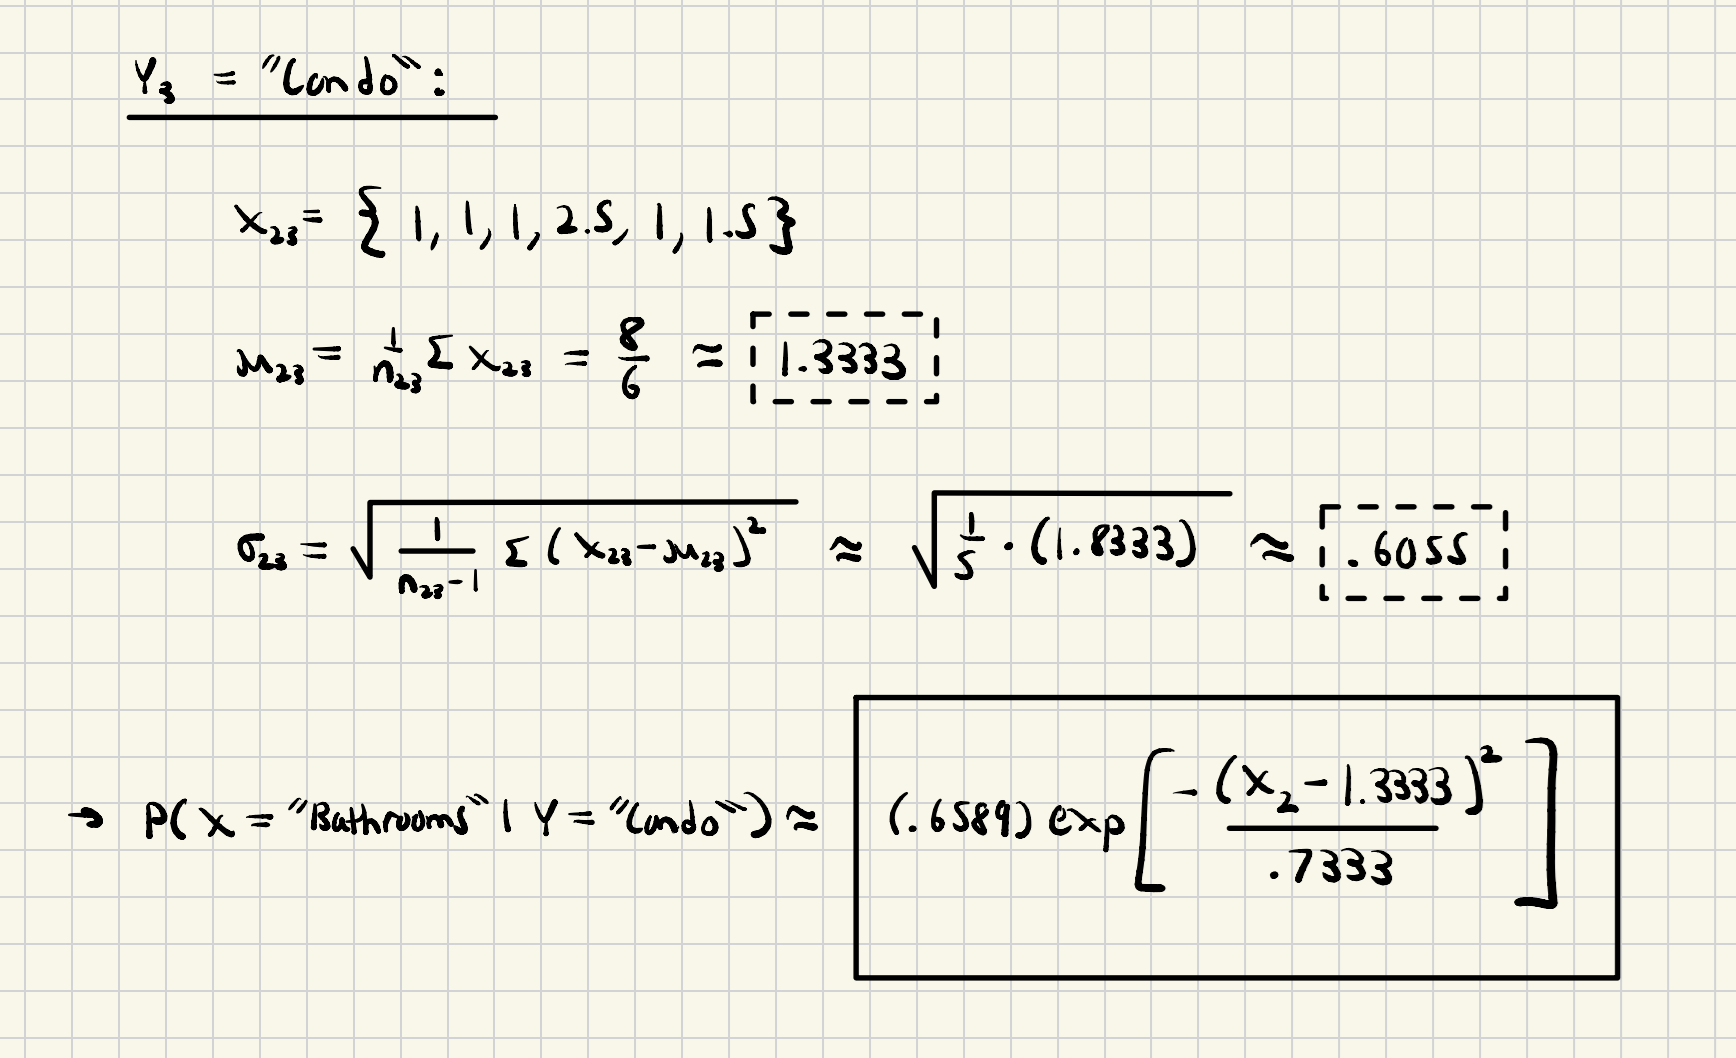 Y₃ = "Condo":
x₂₃ = { 1, 1, 1, 2.5, 1, 1.5 }
μ₂₃ = 1/n₂₃ Σ x₂₃ = 8/6 ≈ 1.3333
σ₂₃ = √(1/(n₂₃-1) Σ (x₂₃-μ₂₃)²) ≈ √(1/5 · (1.8333)) ≈ .6055
→ P( X = "Bathrooms" | Y = "Condo" ) ≈ (.6589) exp[ - (x₂ - 1.3333)² / .7333 ]